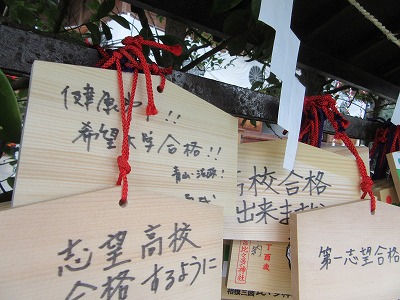 健康や!!
希望大学合格!!
青山・法政!
高校合格
出来ます
志望高校
合格するように
第一志望合格
丁酉歳
比々多神社